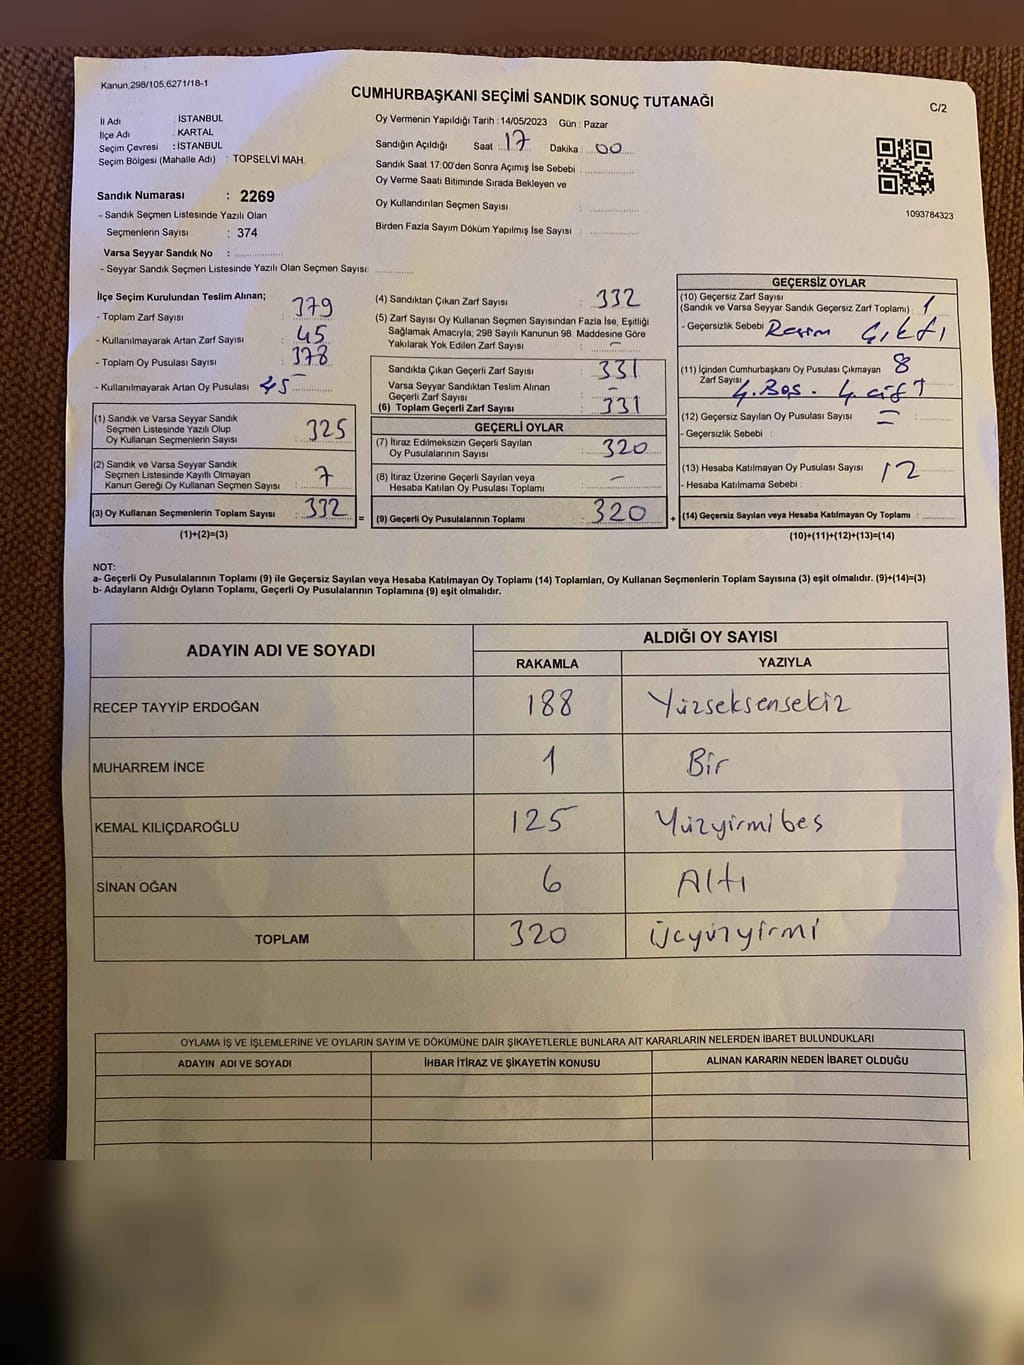 Kanun,298/105,6271/18-1
CUMHURBAŞKANI SEÇİMİ SANDIK SONUÇ TUTANAĞI
C/2
İl Adı : İSTANBUL
İlçe Adı : KARTAL
Seçim Çevresi : İSTANBUL
Seçim Bölgesi (Mahalle Adı) : TOPSELVİ MAH.
Oy Vermenin Yapıldığı Tarih : 14/05/2023 Gün : Pazar
Sandığın Açıldığı Saat : 17 Dakika : 00
Sandık Saat 17:00'den Sonra Açımış İse Sebebi :
Oy Verme Saati Bitiminde Sırada Bekleyen ve
Oy Kullandırılan Seçmen Sayısı :
Birden Fazla Sayım Döküm Yapılmış İse Sayısı :
1093784323
Sandık Numarası : 2269
- Sandık Seçmen Listesinde Yazılı Olan
Seçmenlerin Sayısı : 374
Varsa Seyyar Sandık No :
- Seyyar Sandık Seçmen Listesinde Yazılı Olan Seçmen Sayısı:
İlçe Seçim Kurulundan Teslim Alınan;
- Toplam Zarf Sayısı : 379
- Kullanılmayarak Artan Zarf Sayısı : 45
- Toplam Oy Pusulası Sayısı : 378
- Kullanılmayarak Artan Oy Pusulası : 45
(1) Sandık ve Varsa Seyyar Sandık
Seçmen Listesinde Yazılı Olup
Oy Kullanan Seçmenlerin Sayısı : 325
(2) Sandık ve Varsa Seyyar Sandık
Seçmen Listesinde Kayıtlı Olmayan
Kanun Gereği Oy Kullanan Seçmen Sayısı : 7
(3) Oy Kullanan Seçmenlerin Toplam Sayısı : 332 =
(1)+(2)=(3)
(4) Sandıktan Çıkan Zarf Sayısı : 332
(5) Zarf Sayısı Oy Kullanan Seçmen Sayısından Fazla İse, Eşitliği
Sağlamak Amacıyla; 298 Sayılı Kanunun 98. Maddesine Göre
Yakılarak Yok Edilen Zarf Sayısı : -
Sandıkta Çıkan Geçerli Zarf Sayısı : 331
Varsa Seyyar Sandıktan Teslim Alınan
Geçerli Zarf Sayısı : -
(6) Toplam Geçerli Zarf Sayısı : 331
GEÇERLİ OYLAR
(7) İtiraz Edilmeksizin Geçerli Sayılan
Oy Pusulalarının Sayısı : 320
(8) İtiraz Üzerine Geçerli Sayılan veya
Hesaba Katılan Oy Pusulası Toplamı : -
(9) Geçerli Oy Pusulalarının Toplamı : 320 +
GEÇERSİZ OYLAR
(10) Geçersiz Zarf Sayısı
(Sandık ve Varsa Seyyar Sandık Geçersiz Zarf Toplamı) : 1
- Geçersizlik Sebebi Resim Çıktı
(11) İçinden Cumhurbaşkanı Oy Pusulası Çıkmayan
Zarf Sayısı : 8
4. Boş. 4 çift
(12) Geçersiz Sayılan Oy Pusulası Sayısı : =
- Geçersizlik Sebebi :
(13) Hesaba Katılmayan Oy Pusulası Sayısı : 12
- Hesaba Katılmama Sebebi :
(14) Geçersiz Sayılan veya Hesaba Katılmayan Oy Toplamı :
(10)+(11)+(12)+(13)=(14)
NOT:
a- Geçerli Oy Pusulalarının Toplamı (9) ile Geçersiz Sayılan veya Hesaba Katılmayan Oy Toplamı (14) Toplamları, Oy Kullanan Seçmenlerin Toplam Sayısına (3) eşit olmalıdır. (9)+(14)=(3)
b- Adayların Aldığı Oyların Toplamı, Geçerli Oy Pusulalarının Toplamına (9) eşit olmalıdır.
ADAYIN ADI VE SOYADI
ALDIĞI OY SAYISI
RAKAMLA YAZIYLA
RECEP TAYYİP ERDOĞAN 188 Yüzseksensekiz
MUHARREM İNCE 1 Bir
KEMAL KILIÇDAROĞLU 125 Yüzyirmibeş
SİNAN OĞAN 6 Altı
TOPLAM 320 Üçyüzyirmi
OYLAMA İŞ VE İŞLEMLERİNE VE OYLARIN SAYIM VE DÖKÜMÜNE DAİR ŞİKAYETLERLE BUNLARA AİT KARARLARIN NELERDEN İBARET BULUNDUKLARI
ADAYIN ADI VE SOYADI İHBAR İTİRAZ VE ŞİKAYETİN KONUSU ALINAN KARARIN NEDEN İBARET OLDUĞU